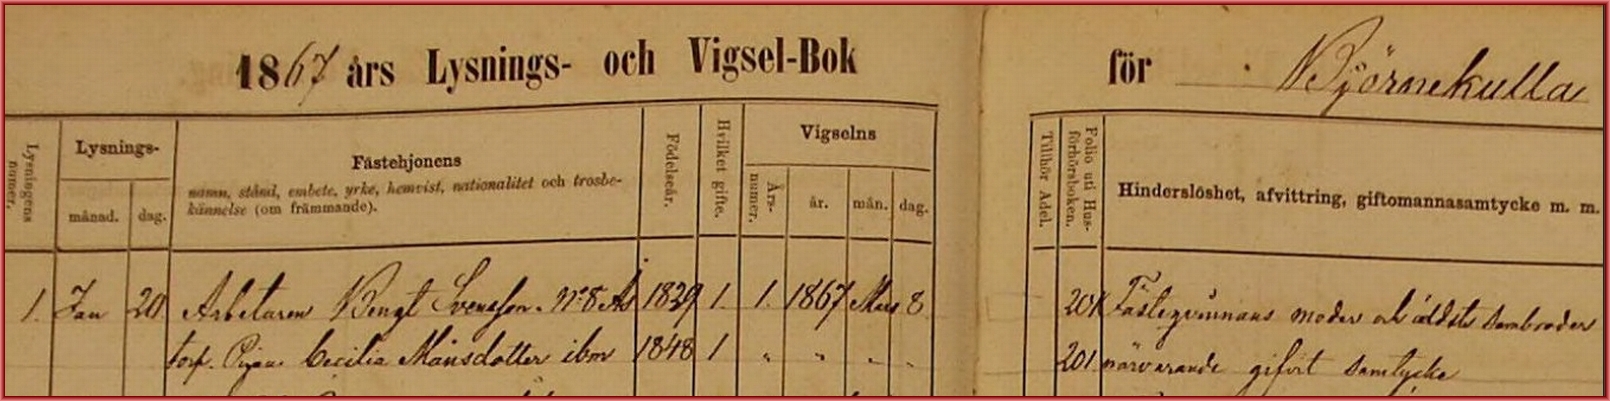 1867 års Lysnings- och Vigsel-Bok för Björnekulla
Lysningens numer.
Lysnings-
månad. dag.
Fästehjonens
namn, stånd, embete, yrke, hemvist, nationalitet och trosbe-
kännelse (om främmande).
Födelseår.
Hvilket gifte.
Vigselns
Års-
numer.
år. mån. dag.
Tillhör Adel.
Folio uti Hus-
förhörsboken.
Hinderslöshet, afvittring, giftomannasamtycke m. m.
1. Jan 20 Arbetaren Bengt Svensson. No 8 Ås 1829 1. 1. 1867 Mars 8 Fästeqvinnans moder och äldste sambroder
torp. Pigan Cecilia Månsdotter ibm 1848 1 " " " " 201 närvarande gifvit samtycke